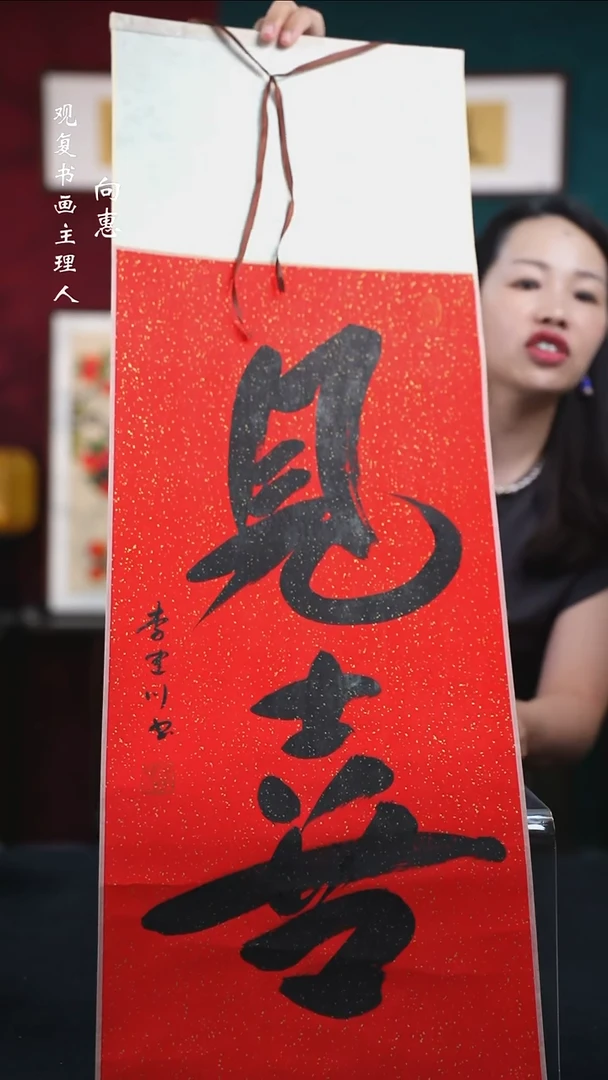 观复书画主理人
向惠
見喜
李川书